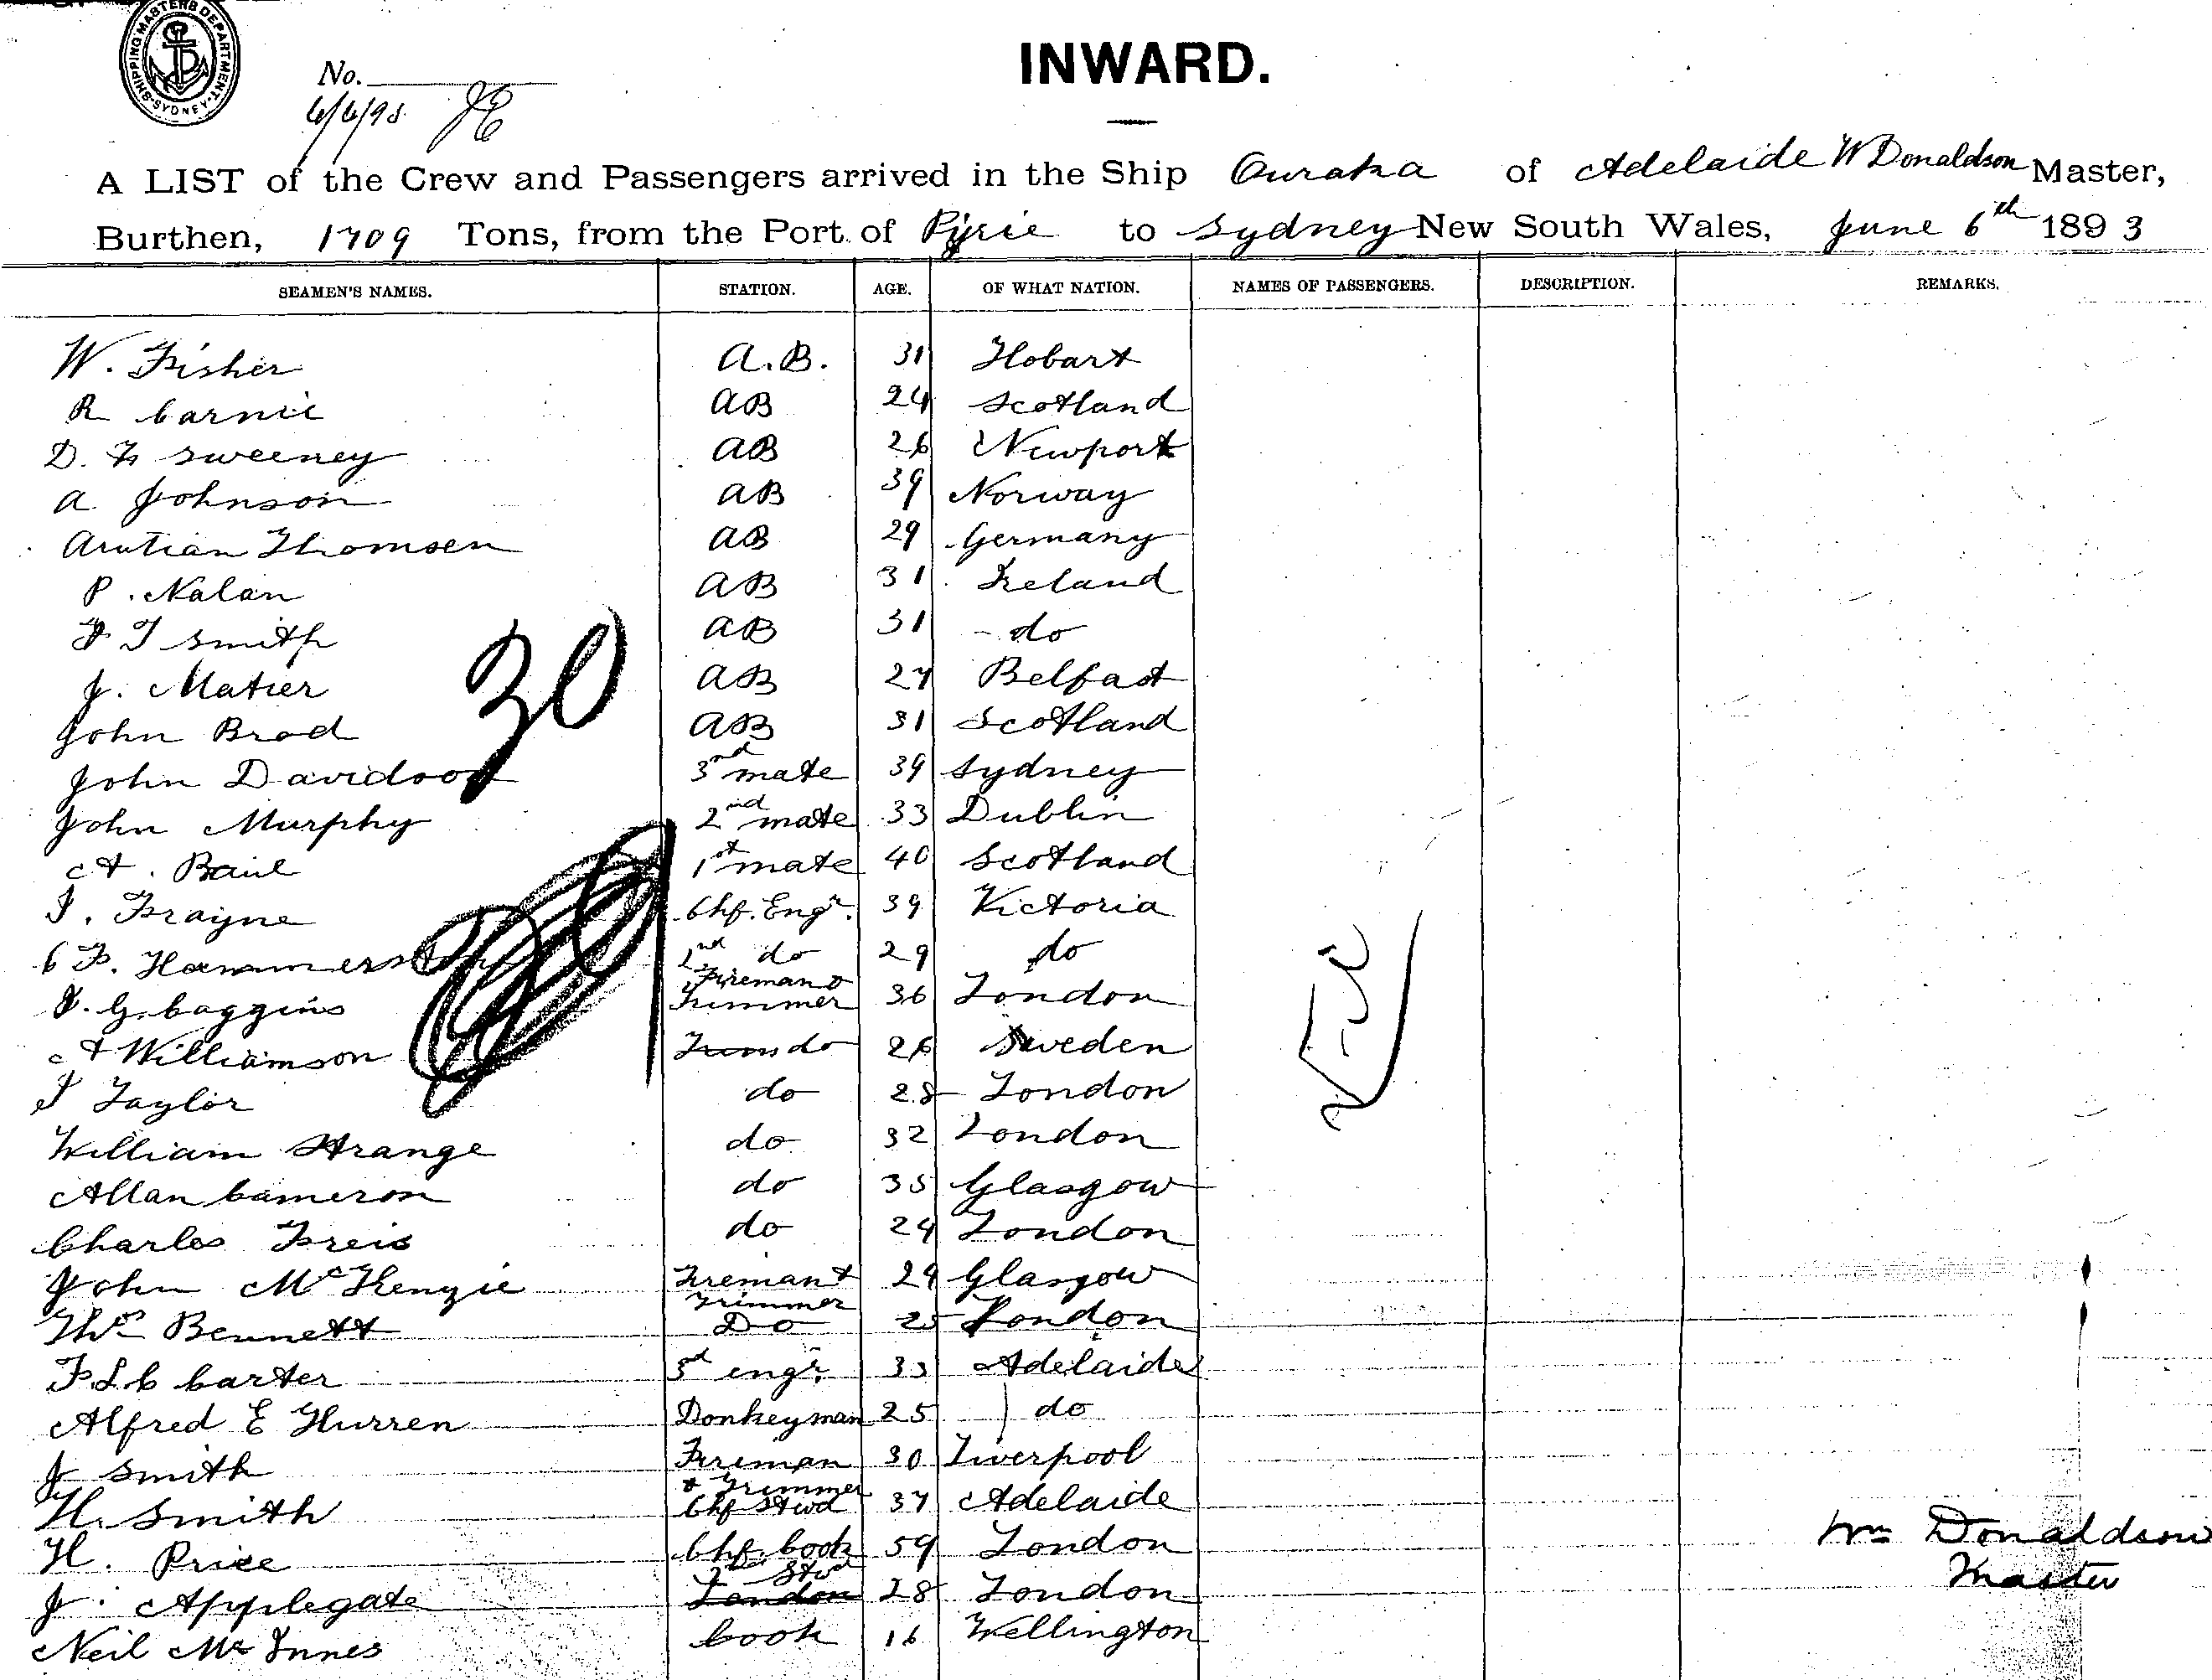 SHIPPING MASTERS DEPARTMENT SYDNEY
INWARD.
No.
6/6/93 JE
A LIST of the Crew and Passengers arrived in the Ship Ouraka of Adelaide W Donaldson Master,
Burthen, 1709 Tons, from the Port of Pirie to Sydney New South Wales, June 6th 1893
SEAMEN'S NAMES. STATION. AGE. OF WHAT NATION. NAMES OF PASSENGERS. DESCRIPTION. REMARKS.
W. Fisher A.B. 31 Hobart
R Carnie AB 24 Scotland
D. F Sweeney AB 26 Newport
A. Johnson AB 39 Norway
Thomsen AB 29 Germany
P. Nalan AB 31 Ireland
F T Smith AB 31 do
J. Matier AB 27 Belfast
John Brod AB 31 Scotland
30
John Davidson 3rd mate 39 Sydney
John Murphy 2nd mate 33 Dublin
A. 1st mate 40 Scotland
J. Frayne Chf. Engr. 39 Victoria
C F. 2nd do 29 do
J. G. Coggins Fireman & Trimmer 36 London
A Williamson Trim do 26 Sweden
J Taylor do 28 London
William Strange do 32 London
Allan Cameron do 35 Glasgow
Charles Freis do 24 London
John McKenzie Fireman & Trimmer 29 Glasgow
Thos Bennett Do 25 London
F. L. C Carter 3rd engr. 33 Adelaide
Alfred E Hurren Donkeyman 25 do
J Smith Fireman & Trimmer 30 Liverpool
H. Smith Chf Stwd 37 Adelaide
H. Price Chf. Cook 59 London
J. Applegate 2nd Stwd London 28 London
Neil McInnes Cook 16 Wellington
Nil
Wm Donaldson
Master